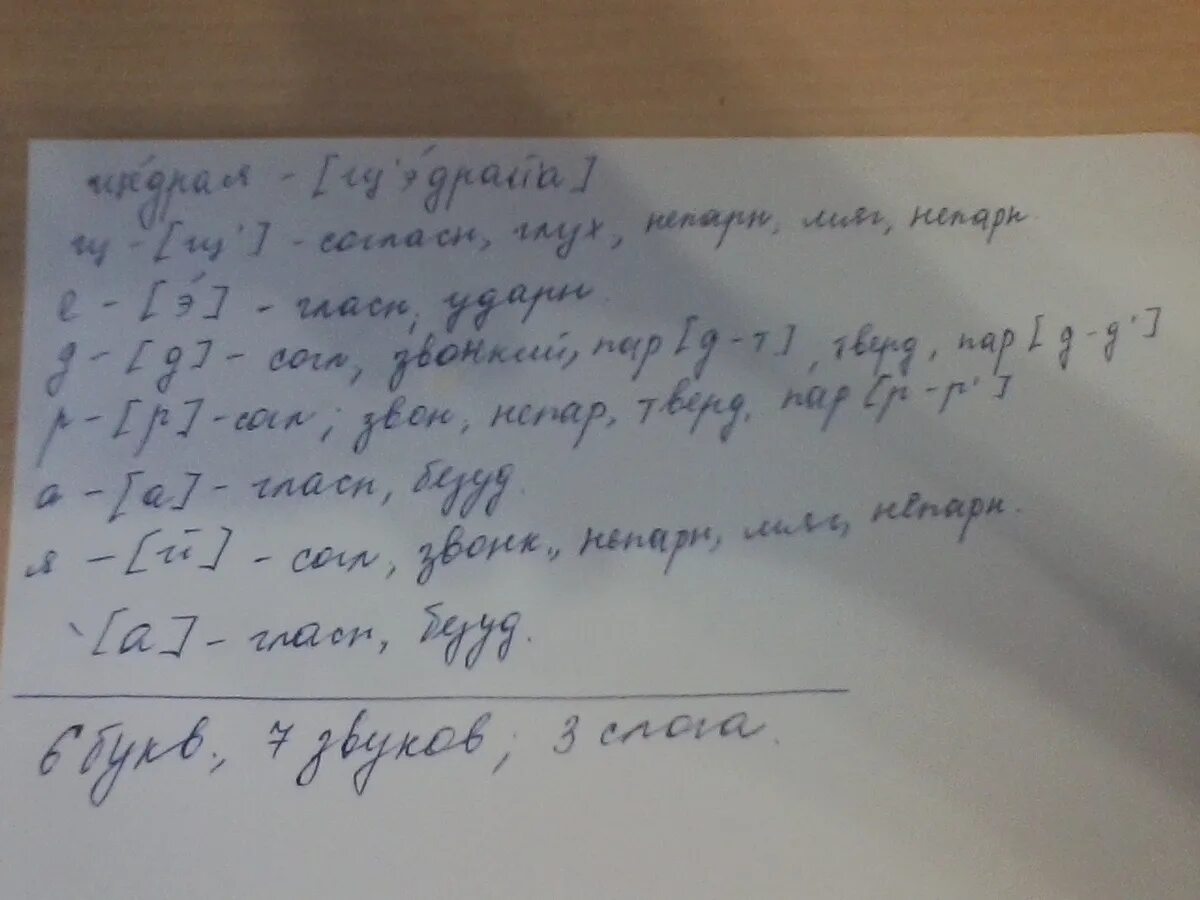 щедрая - [щ'э́драйа]
щ - [щ'] - согласн, глух, непарн, мяг, непарн.
е - [э́] - гласн, ударн.
д - [д] - согл, звонкий, пар [д-т], тверд, пар [д-д']
р - [р] - согл; звон, непар, тверд, пар [р-р']
а - [а] - гласн, безуд.
я - [й] - согл, звонк., непарн, мяг, непарн.
[а] - гласн, безуд.
6 букв., 7 звуков; 3 слога.